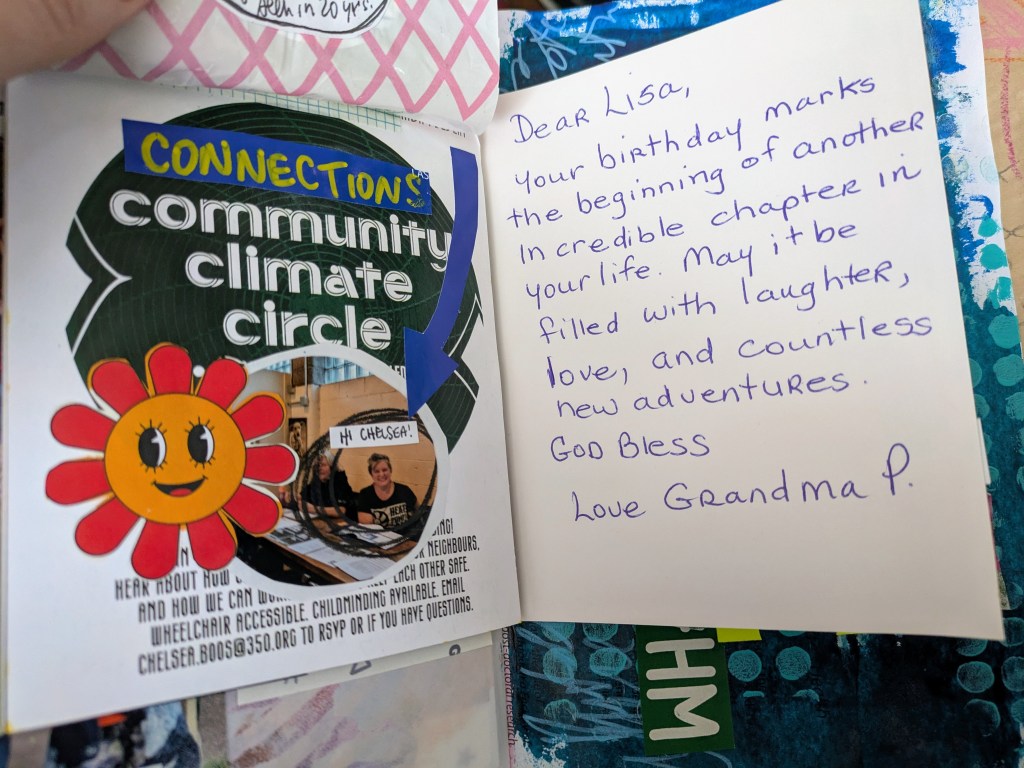 in 20 yrs!
CONNECTIONS
community
climate
circle
HI CHELSEA!
NEIGHBOURS,
HEAR ABOUT HOW EACH OTHER SAFE
AND HOW WE CAN
WHEELCHAIR ACCESSIBLE. CHILDMINDING AVAILABLE. EMAIL
CHELSEA.BOOS@350.ORG TO RSVP OR IF YOU HAVE QUESTIONS.
Dear Lisa,
your birthday marks
the beginning of another
Incredible chapter in
your life. May it be
filled with laughter,
love, and countless
new adventures.
God Bless
Love Grandma P.
HM